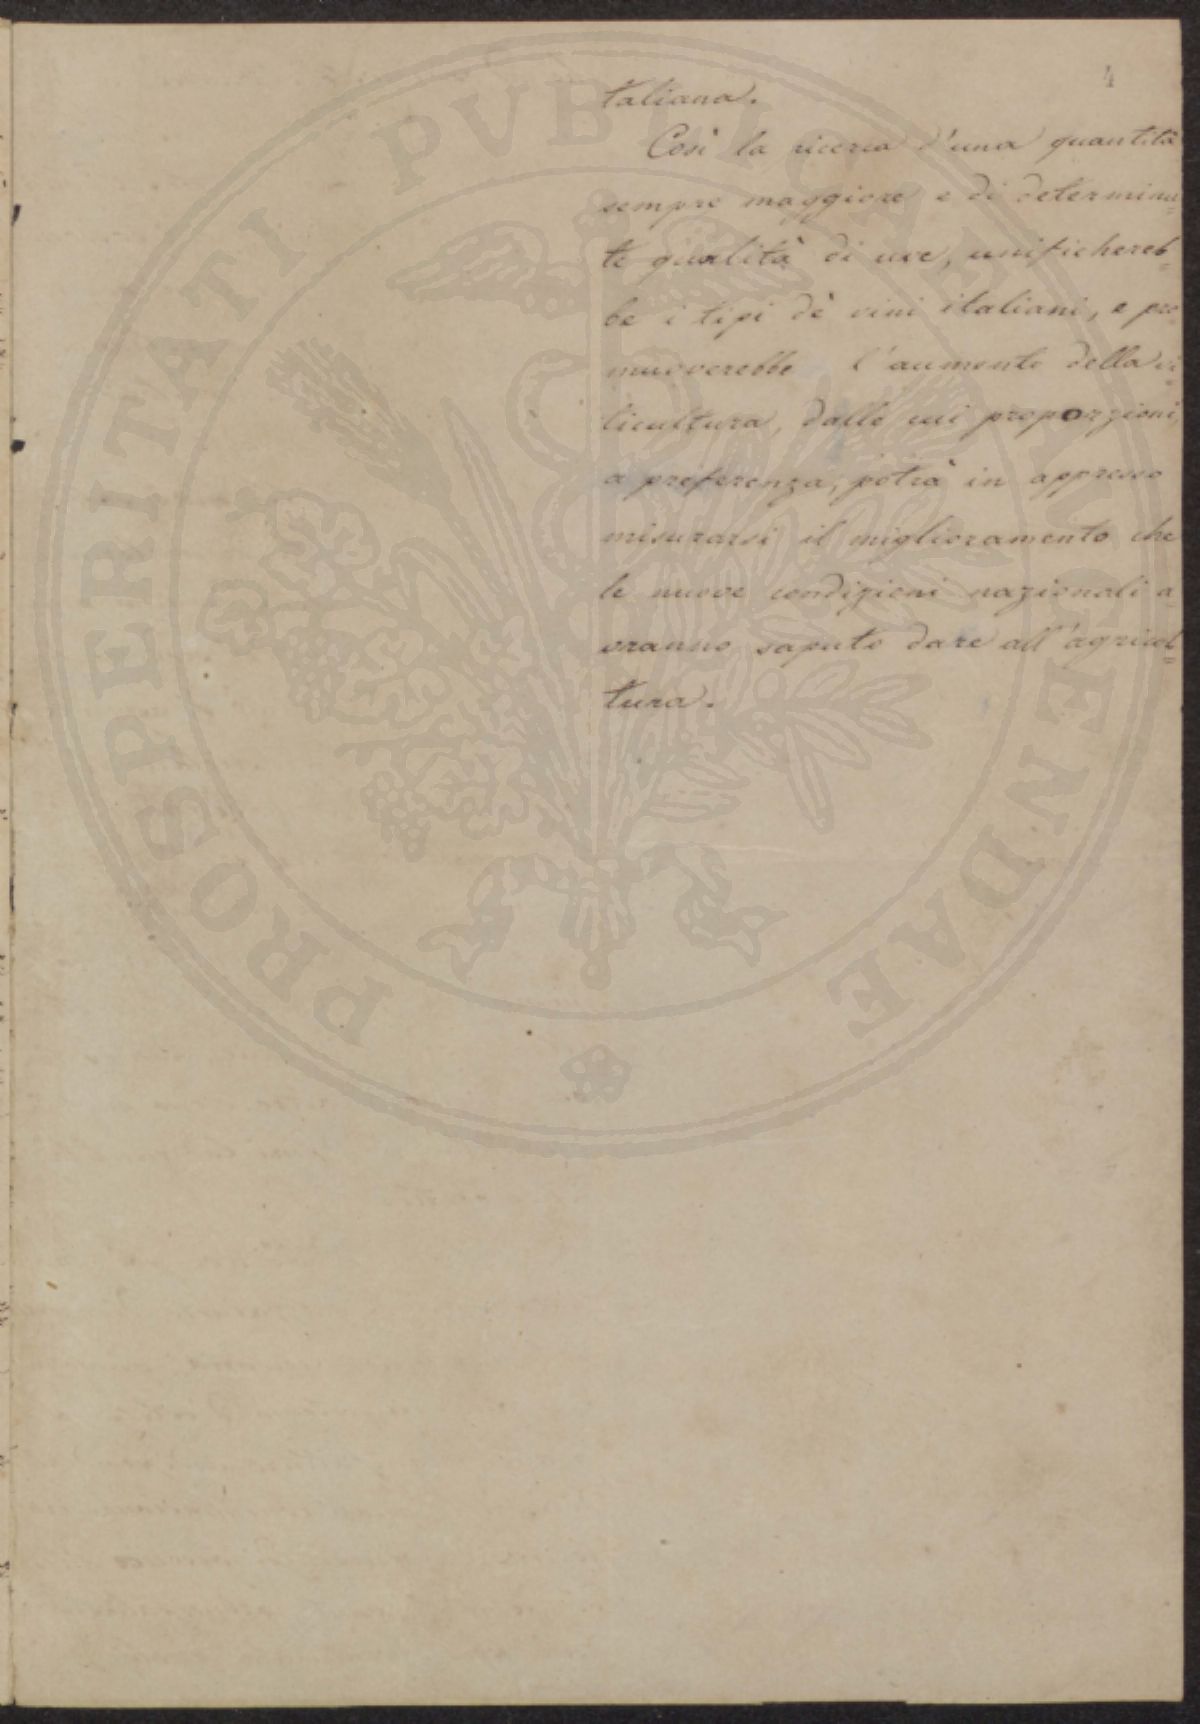 4
taliana.
Così la ricerca d'una quantità
sempre maggiore e di determina=
te qualità di uve, unifichereb=
be i tipi dè vini italiani, e pro=
muoverebbe l'aumento della vi=
ticultura, dalle cui proporzioni,
a preferenza, potrà in appresso
misurarsi il miglioramento che
le nuove condizioni nazionali a=
vranno saputo dare all'agricol=
tura.
PROSPERITATI PVBLICAE AVGENDAE